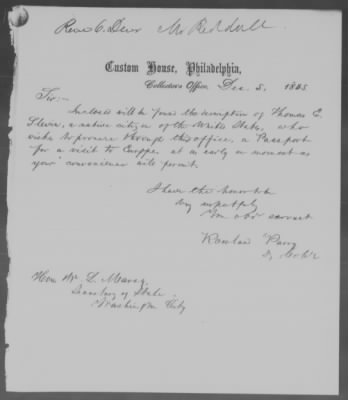 Recd 6 Decr Mr Reddall
Custom House, Philadelphia,
Collector's Office, Dec. 5, 1855
Sir,-
Inclosed will be found the description of Thomas E.
a native citizen of the United States, who
wishes to procure through this office, a Passport
for a visit to Europe at as early a moment as
your convenience will permit.
I have the honor to be
Very respectfully
Your obdt servant
Parry
Hon W. L. Marcy,
Secretary of State,
Washington City